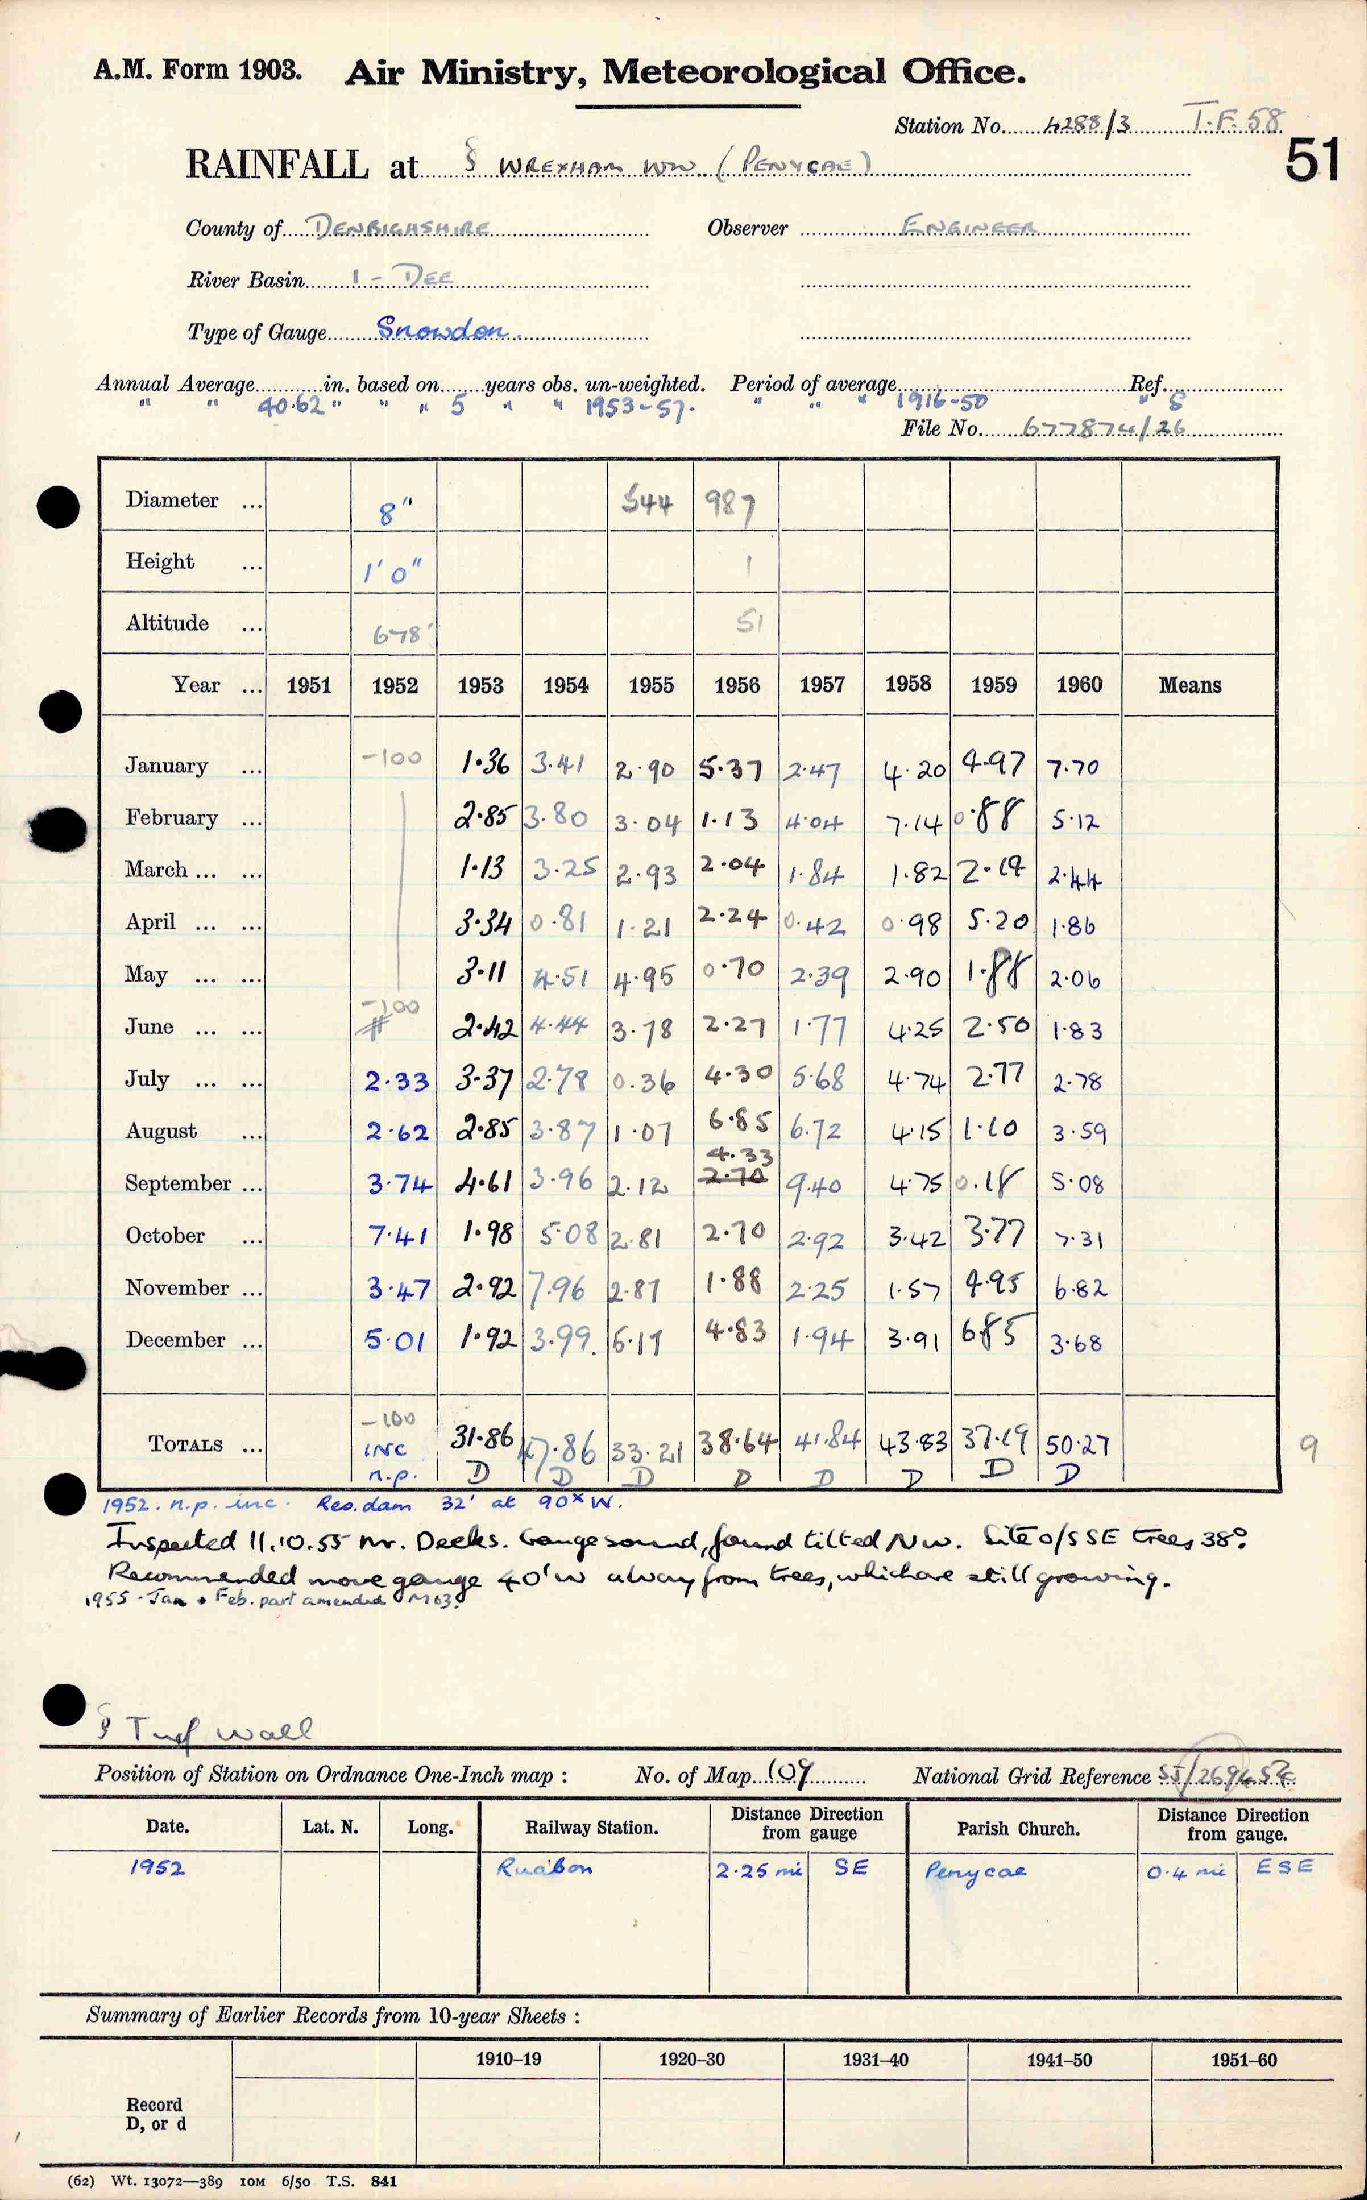 A.M. Form 1903. Air Ministry, Meteorological Office.
Station No. 4288/3 T.F. 58
51
RAINFALL at § WREXHAM WW (PENYCAE)
County of DENBIGHSHIRE Observer ENGINEER
River Basin 1 - DEE
Type of Gauge Snowdon.
Annual Average in. based on years obs. un-weighted. Period of average Ref.
" " 40.62 " " " 5 " " 1953-57. " " " 1916-50 " S
File No. 677874/26
Diameter ... 8" 544 987
Height ... 1'0" 1
Altitude ... 678' 51
Year ... 1951 1952 1953 1954 1955 1956 1957 1958 1959 1960 Means
January ... -100 1.36 3.41 2.90 5.37 2.47 4.20 4.97 7.70
February ... 2.85 3.80 3.04 1.13 4.04 7.14 0.88 5.12
March ... ... 1.13 3.25 2.93 2.04 1.84 1.82 2.14 2.44
April ... ... 3.34 0.81 1.21 2.24 0.42 0.98 5.20 1.86
May ... ... 3.11 4.51 4.95 0.70 2.39 2.90 1.88 2.06
June ... ... -100 2.42 4.44 3.78 2.27 1.77 4.25 2.50 1.83
July ... ... 2.33 3.37 2.78 0.36 4.30 5.68 4.74 2.77 2.78
August ... 2.62 2.85 3.87 1.07 6.85 6.72 4.15 1.10 3.59
4.33
September ... 3.74 4.61 3.96 2.12 2.70 9.40 4.75 0.18 5.08
October ... 7.41 1.98 5.08 2.81 2.70 2.92 3.42 3.77 7.31
November ... 3.47 2.92 7.96 2.87 1.88 2.25 1.57 4.95 6.82
December ... 5.01 1.92 3.99. 5.17 4.83 1.94 3.91 6.85 3.68
-100
TOTALS ... INC 31.86 47.86 33.21 38.64 41.84 43.83 37.19 50.27 9
n.p. D D D D D D D D
1952. n.p. inc. Res. dam 32' at 90° W.
Inspected 11.10.55 Mr. Deeks. Gauge sound, found tilted NW. Site o/s SE trees 38°.
Recommended move gauge 40' W away from trees, which are still growing.
1955 - Jan & Feb. part amended M03.
§ Turf Wall
Position of Station on Ordnance One-Inch map : No. of Map 109 National Grid Reference SJ/269454
Date. Lat. N. Long. Railway Station. Distance from Direction gauge Parish Church. Distance from Direction gauge.
1952 Ruabon 2.25 mi SE Penycae 0.4 mi ESE
Summary of Earlier Records from 10-year Sheets :
1910–19 1920–30 1931–40 1941–50 1951–60
Record
D, or d
(62) Wt. 13072—389 10M 6/50 T.S. 841